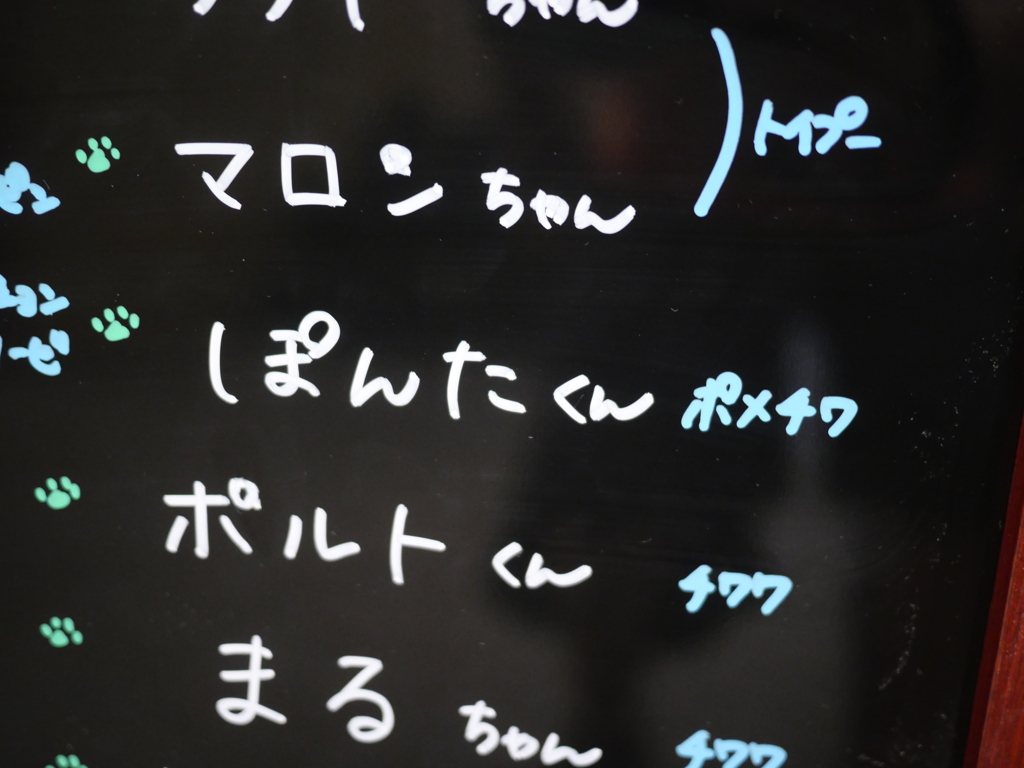 ちゃん
マロンちゃん
トイプー
ぽんたくん ポメチワ
ポルトくん チワワ
まるちゃん チワワ